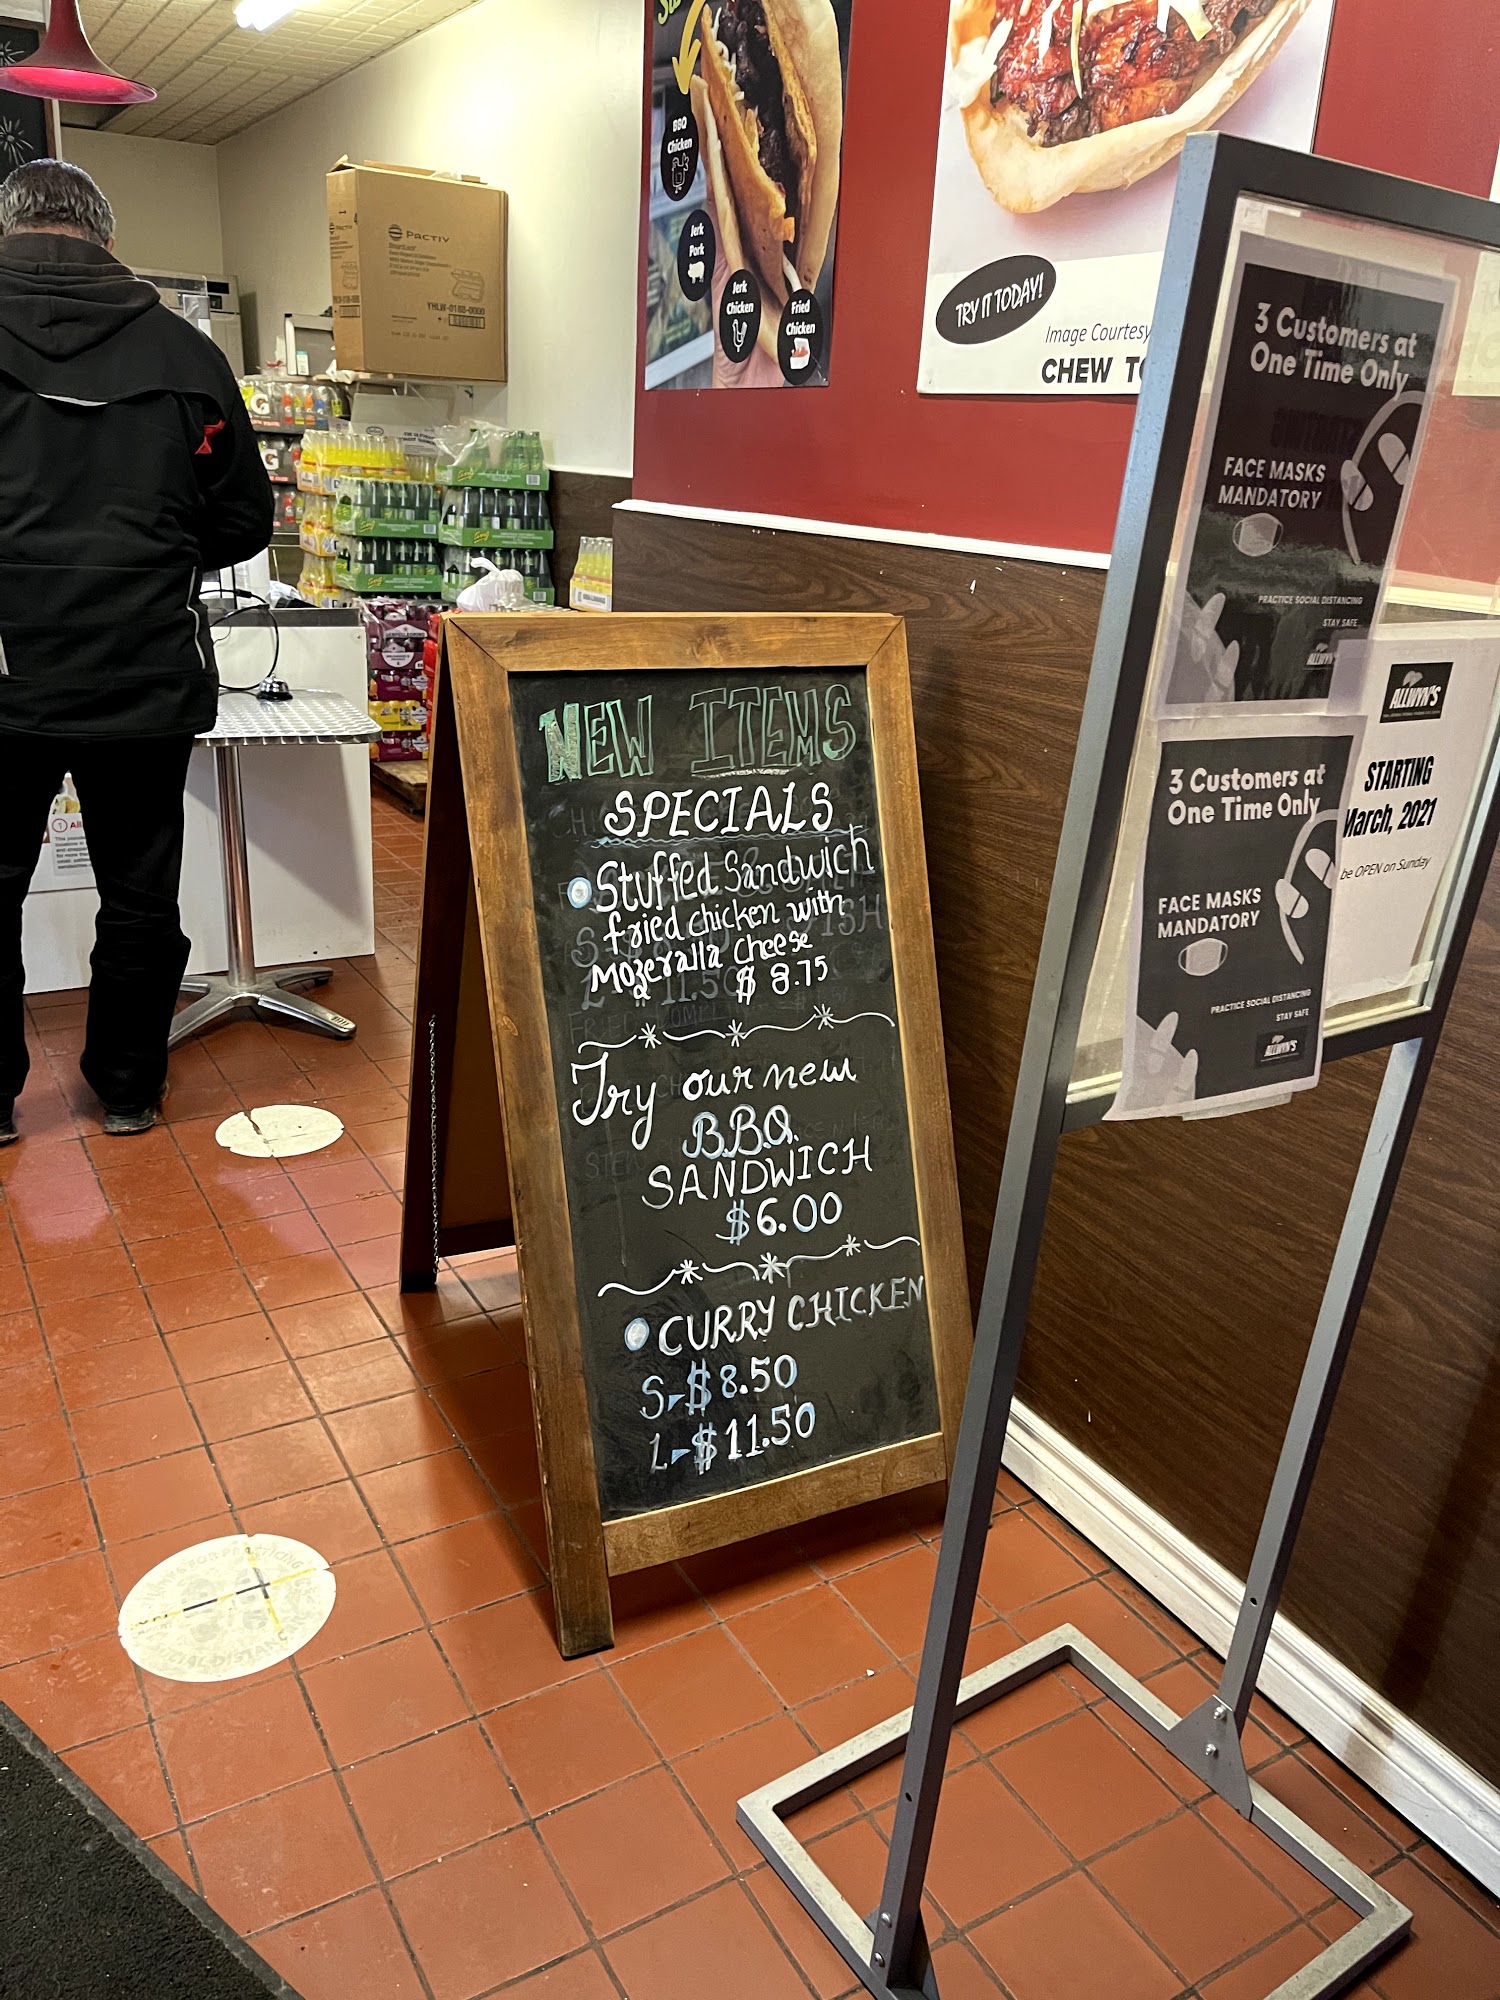 BBQ
Chicken
Jerk
Pork
Jerk
Chicken
Fried
Chicken
TRY IT TODAY!
Image Courtesy
CHEW
PACTIV
YHLW-0188-0000
G
G
NEW ITEMS
SPECIALS
Stuffed Sandwich
fried chicken with
Mozeralla Cheese
$ 8.75
Try our new
B.B.Q.
SANDWICH
$6.00
CURRY CHICKEN
S-$8.50
L-$11.50
3 Customers at
One Time Only
FACE MASKS
MANDATORY
PRACTICE SOCIAL DISTANCING
STAY SAFE
ALLWYN'S
3 Customers at
One Time Only
FACE MASKS
MANDATORY
PRACTICE SOCIAL DISTANCING
STAY SAFE
ALLWYN'S
ALLWYN'S
STARTING
March, 2021
be OPEN on Sunday